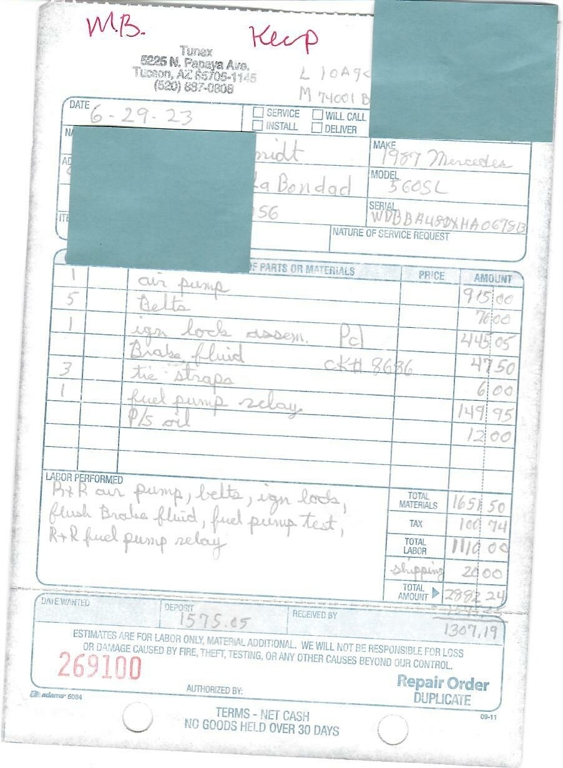 M.B.
Keep
Tunax
5225 N. Papaya Ave.
Tucson, AZ 85705-1145
(520) 887-0808
L 10A9
M 74001 B
DATE 6-29-23
SERVICE WILL CALL
INSTALL DELIVER
MAKE 1987 Mercedes
midt
MODEL 560SL
La Bondad
SERIAL
56
NATURE OF SERVICE REQUEST
OF PARTS OR MATERIALS PRICE AMOUNT
1 air pump 915 00
5 Belts 76 00
1 ign lock assem. Pd 445 05
Brake fluid ck# 8686 47 50
3 tie straps 6 00
1 fuel pump relay 149 95
P/S oil 12 00
LABOR PERFORMED
R+R air pump, belts, ign lock,
flush Brake fluid, fuel pump test,
R+R fuel pump relay
TOTAL MATERIALS 1651 50
TAX 100 74
TOTAL LABOR 1110 00
shipping 20 00
TOTAL AMOUNT 2882 24
DATE WANTED DEPOSIT 1575.05 RECEIVED BY 1307.19
ESTIMATES ARE FOR LABOR ONLY, MATERIAL ADDITIONAL. WE WILL NOT BE RESPONSIBLE FOR LOSS
OR DAMAGE CAUSED BY FIRE, THEFT, TESTING, OR ANY OTHER CAUSES BEYOND OUR CONTROL.
269100
AUTHORIZED BY:
Repair Order
DUPLICATE
adams 5084
09-11
TERMS - NET CASH
NO GOODS HELD OVER 30 DAYS